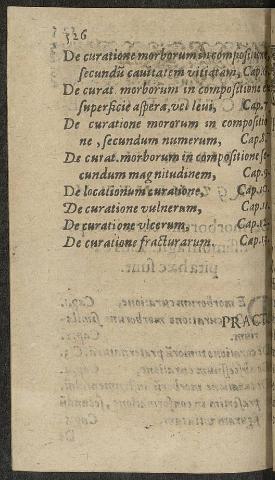 326
De curatione morborum in compositione
secundũ cavitatem vitiatam, Cap.6.
De curat. morborum in compositione
superficie aspera, vel leui, Cap.7
De curatione mororum in compositio
ne, secundum numerum, Cap.8.
De curat. morborum in compositione se
cundum magnitudinem, Cap.9.
De locationum curatione, Cap.10.
De curatione vulnerum, Cap.11.
De curatione vlcerum, Cap.12.
De curatione fracturarum. Cap.13
PRACT